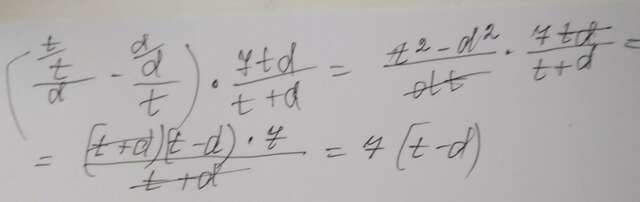 (t/t/d - d/d/t) · 7td/t+d = t²-d²/dt · 7td/t+d =
= (t+d)(t-d)·7/t+d = 7(t-d)